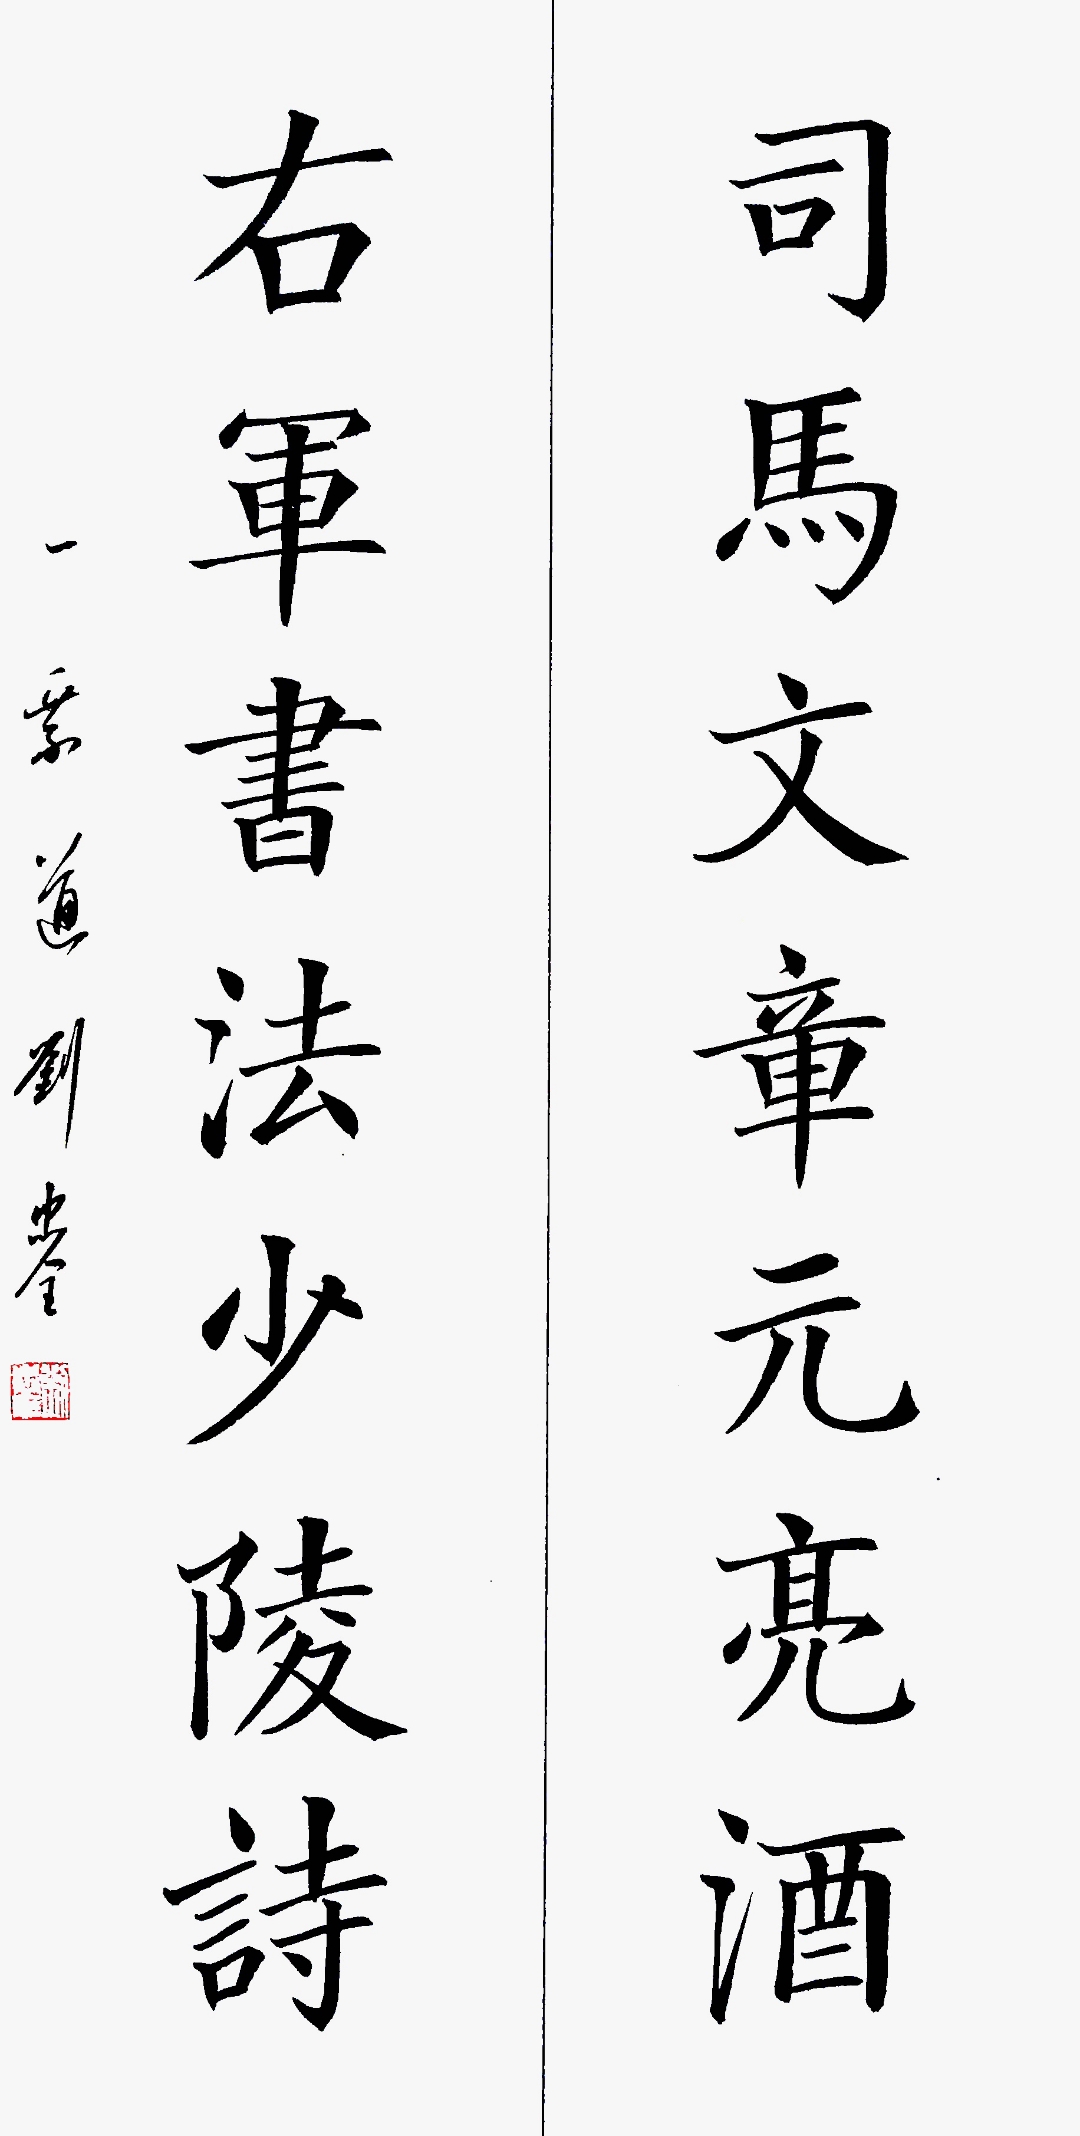 司馬文章元亮酒
右軍書法少陵詩
一 道劉忠全